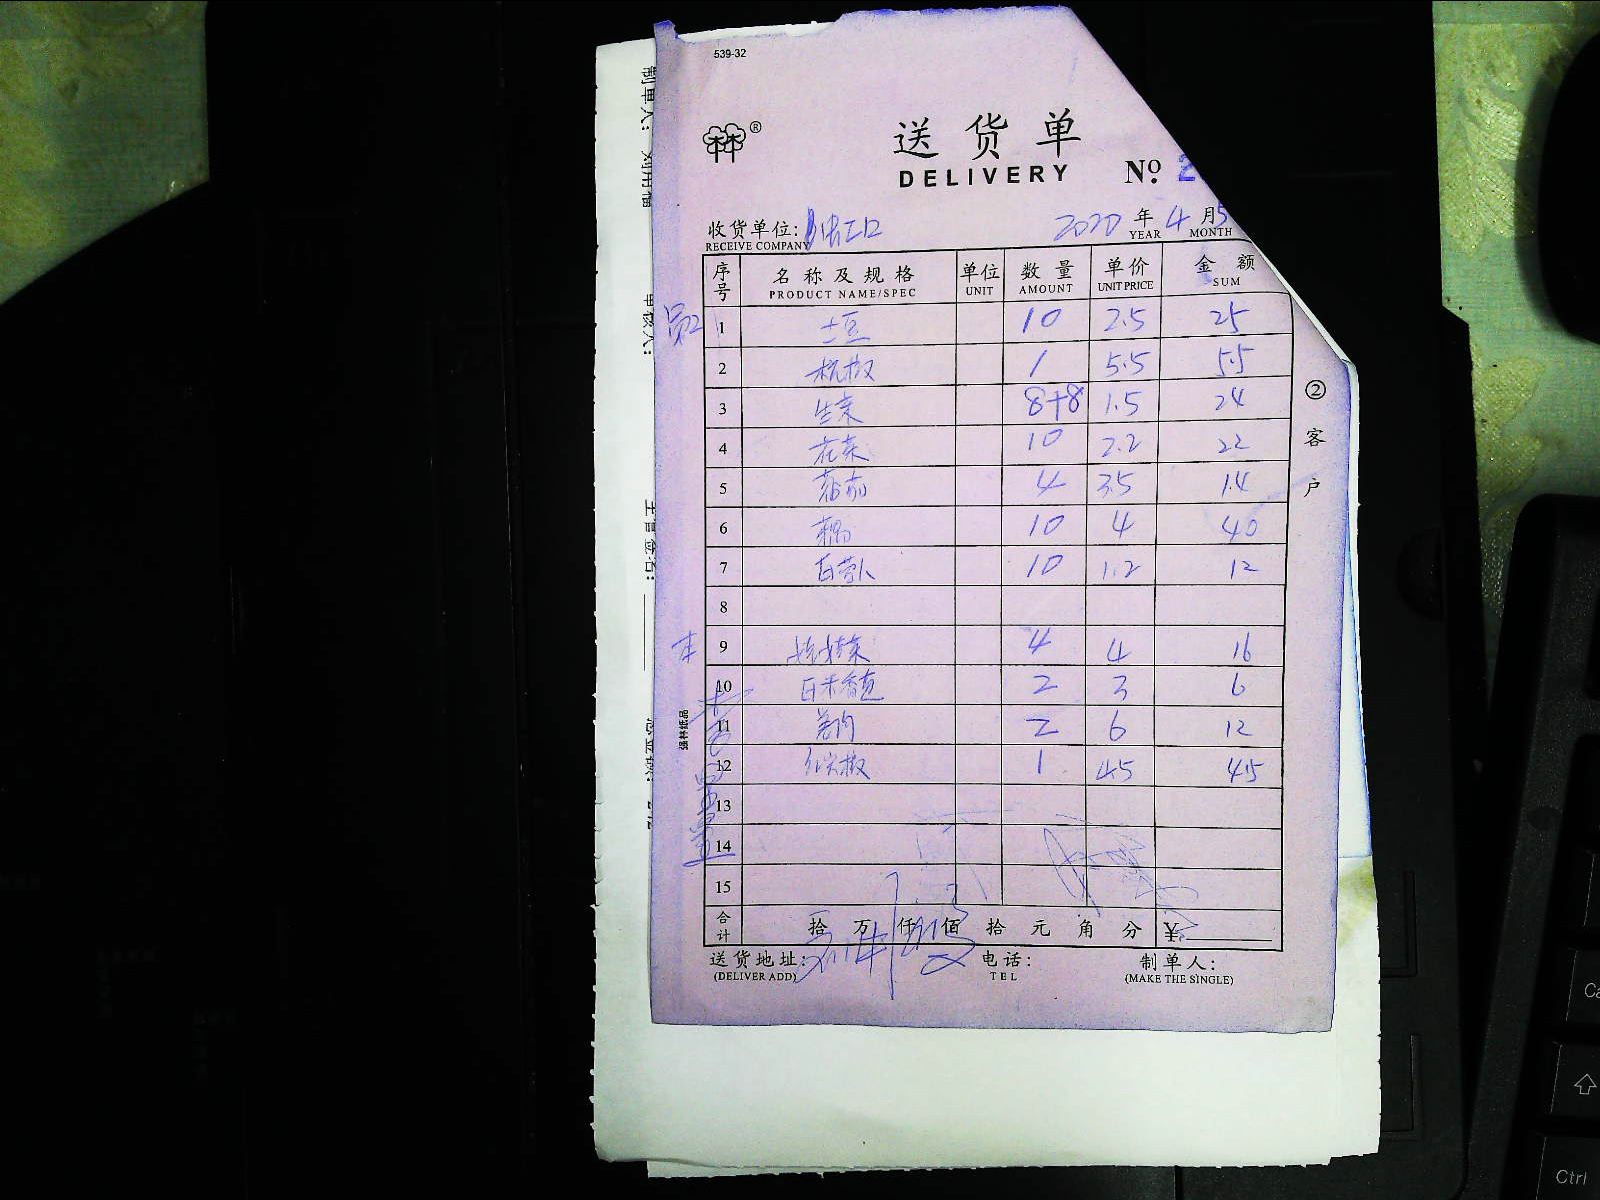 539-32
®
送货单
DELIVERY
No. 2
收货单位:
RECEIVE COMPANY
2020 年 4 月 5
YEAR MONTH
序号 名称及规格 单位 数量 单价 金额
PRODUCT NAME/SPEC UNIT AMOUNT UNIT PRICE SUM
1 土豆 10 2.5 25
2 杭椒 1 5.5 5.5
3 生菜 8+8 1.5 24
4 花菜 10 2.2 22
5 番茄 4 3.5 14
6 藕 10 4 40
7 白萝卜 10 1.2 12
8
9 4 4 16
10 2 3 6
11 2 6 12
12 红尖椒 1 4.5 4.5
13
14
15
合计 拾 万 仟 佰 拾 元 角 分 ¥
送货地址: 电话: 制单人:
(DELIVER ADD) TEL (MAKE THE SINGLE)
② 客户
强林纸品
制单人:
审核人:
主管签名:
Ctrl